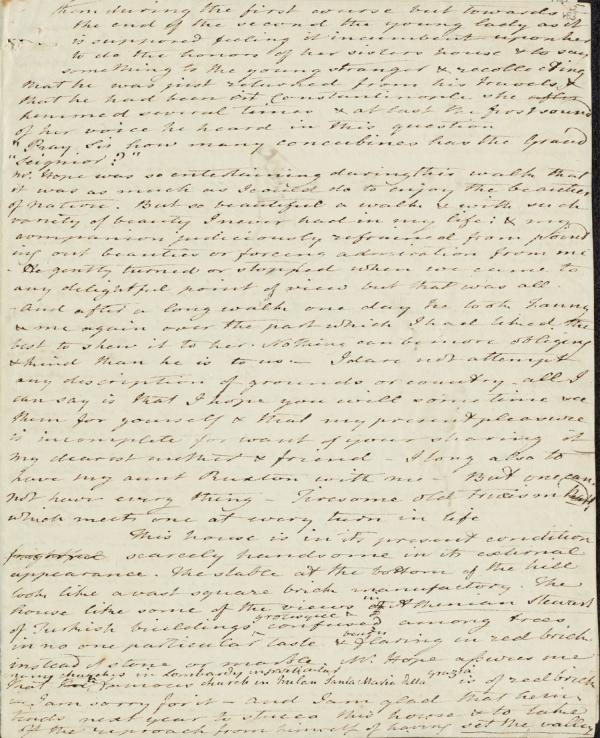 them during the first course but towards
the end of the second the young lady as it
is supposed feeling it incumbent upon her
to do the honors of her sisters house & to say
something to the young stranger & recollecting
that he was just returned from his travels &
that he had been at Constantinople she after
hemmed several times & at last the first sound
of her voice he heard in this question
"Pray Sir how many concubines has the Grand
Seignior?"
Mr. Hope was so entertaining during this walk that
it was as much as I could do to enjoy the beauties
of nature. But so beautiful a walk & with such
variety of beauty I never had in my life: & my
companion judiciously refrained from point
ing out beauties or forcing admiration from me
He gently turned or stopped when we came to
any delightful point of view but that was all.
And after a long walk one day he took Fanny
& me again over the part which I had liked the
best to shew it to her. Nothing can be more obliging
& kind than he is to us – I dare not attempt
any description of grounds or country – all I
can say is that I hope you will sometime see
them for yourself & that my present pleasure
is incomplete for want of your sharing it
my dearest mother & friend – I long also to
have my aunt Ruxton with me – But one can
not have every thing – Tiresome old truism
which meets one at every turn in life
This house is in its present condition
frightful scarcely handsome in its external
appearance. The stable at the bottom of the hill
look like a vast square brick manufactory. The
house like some of the views in Athenian Stewart
of Turkish buildings grotesque & confused among trees
in no one particular taste & glaring in red brick
instead of stone or marble. Mr. Hope assures me
many churches in Lombardy in particular
that famous church in Milan Santa Maria Della grazia is of red brick
– I am sorry for it – and I am glad that he in
tends next year to stucco this house & to take
off the reproach from himself of having set the valley